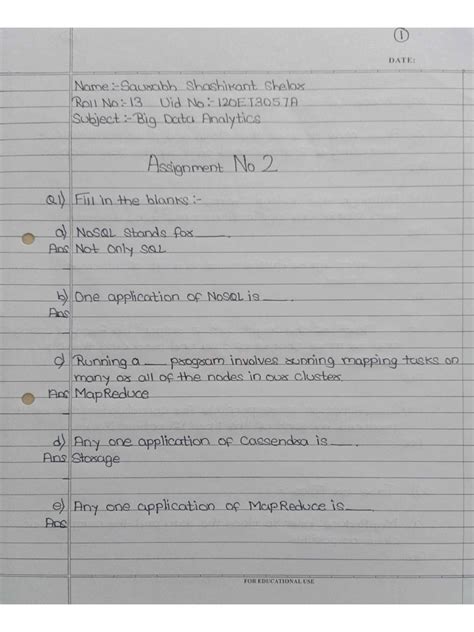 1
DATE:
Name:- Saurabh Shashikant Shelar
Roll No:- 13 Uid No:- 120ET3057A
Subject:- Big Data Analytics
Assignment No 2
Q1) Fill in the blanks:-
a) NoSQL stands for ____.
Ans Not Only SQL
b) One application of NoSQL is ____.
Ans
c) Running a ___ program involves running mapping tasks on
many or all of the nodes in our cluster.
Ans MapReduce
d) Any one application of Cassendra is ____.
Ans Storage
e) Any one application of MapReduce is ____.
Ans
FOR EDUCATIONAL USE